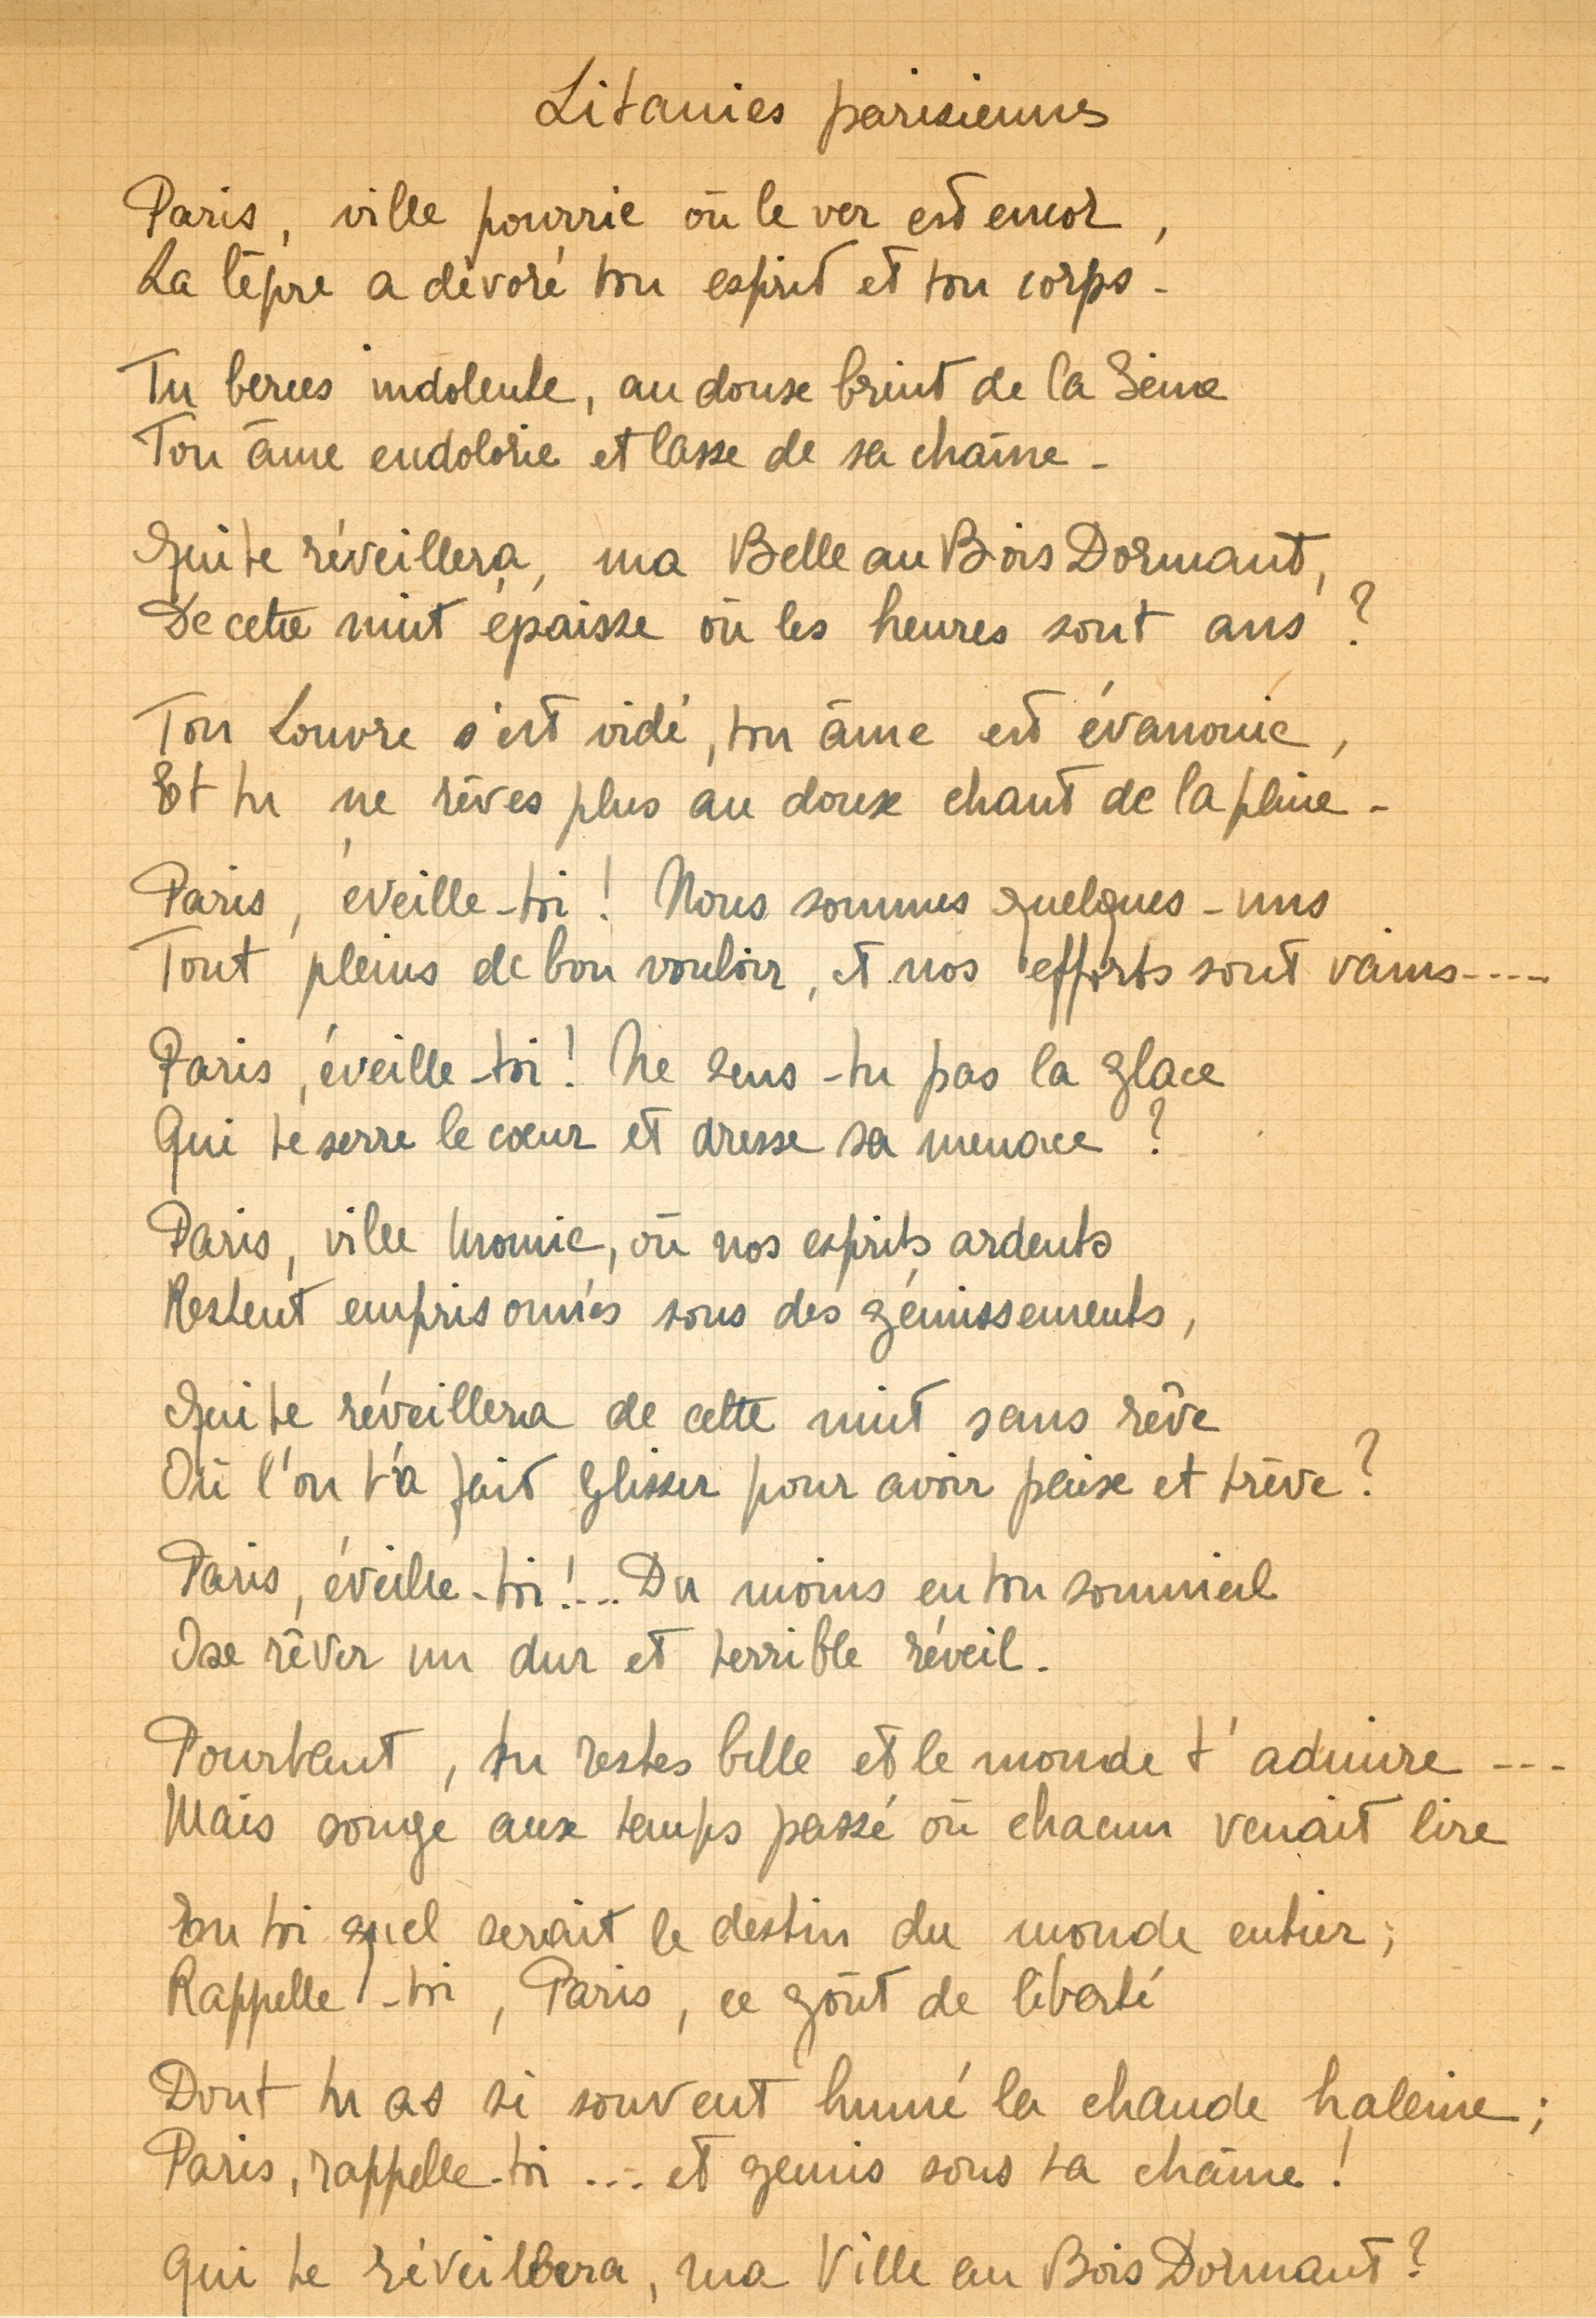 Litanies parisiennes
Paris, ville pourrie où le ver est encor,
La lèpre a dévoré ton esprit et ton corps -
Tu berces indolente, au doux bruit de la Seine
Ton âme endolorie et lasse de sa chaîne -
Qui te réveillera, ma Belle au Bois Dormant,
De cette nuit épaisse où les heures sont ans ?
Ton Louvre s'est vidé, ton âme est évanouie,
Et tu ne rêves plus au doux chant de la pluie -
Paris, éveille-toi ! Nous sommes quelques-uns
Tout pleins de bon vouloir, et nos efforts sont vains----
Paris, éveille-toi ! Ne sens-tu pas la glace
Qui te serre le cœur et dresse sa menace ?
Paris, ville momie, où nos esprits ardents
Restent emprisonnés sous des gémissements,
Qui te réveillera de cette nuit sans rêve
Où l'on t'a fait glisser pour avoir paix et trêve ?
Paris, éveille-toi !... Du moins en ton sommeil
Ose rêver un dur et terrible réveil.
Pourtant, tu restes belle et le monde t'admire ---
Mais songe aux temps passé où chacun venait lire
En toi quel serait le destin du monde entier ;
Rappelle-toi, Paris, ce goût de liberté
Dont tu as si souvent humé la chaude haleine ;
Paris, rappelle-toi ... et gémis sous ta chaîne !
Qui te réveillera, ma Ville au Bois Dormant ?